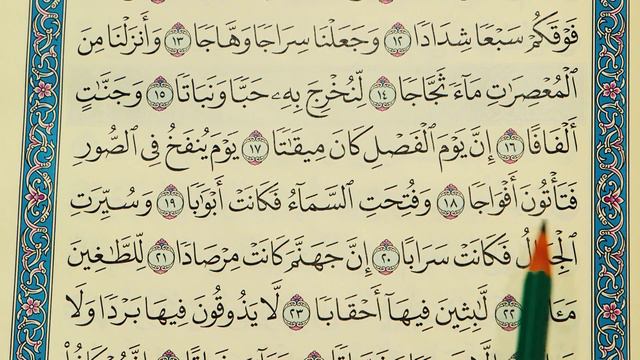 فَوْقَكُمْ سَبْعًا شِدَادًا ١٢ وَجَعَلْنَا سِرَاجًا وَهَّاجًا ١٣ وَأَنزَلْنَا مِنَ
ٱلْمُعْصِرَٰتِ مَآءً ثَجَّاجًا ١٤ لِّنُخْرِجَ بِهِۦ حَبًّا وَنَبَاتًا ١٥ وَجَنَّٰتٍ
أَلْفَافًا ١٦ إِنَّ يَوْمَ ٱلْفَصْلِ كَانَ مِيقَٰتًا ١٧ يَوْمَ يُنفَخُ فِى ٱلصُّورِ
فَتَأْتُونَ أَفْوَاجًا ١٨ وَفُتِحَتِ ٱلسَّمَآءُ فَكَانَتْ أَبْوَٰبًا ١٩ وَسُيِّرَتِ
ٱلْجِبَالُ فَكَانَتْ سَرَابًا ٢٠ إِنَّ جَهَنَّمَ كَانَتْ مِرْصَادًا ٢١ لِّلطَّٰغِينَ
٢٢ لَّٰبِثِينَ فِيهَآ أَحْقَابًا ٢٣ لَّا يَذُوقُونَ فِيهَا بَرْدًا وَلَا